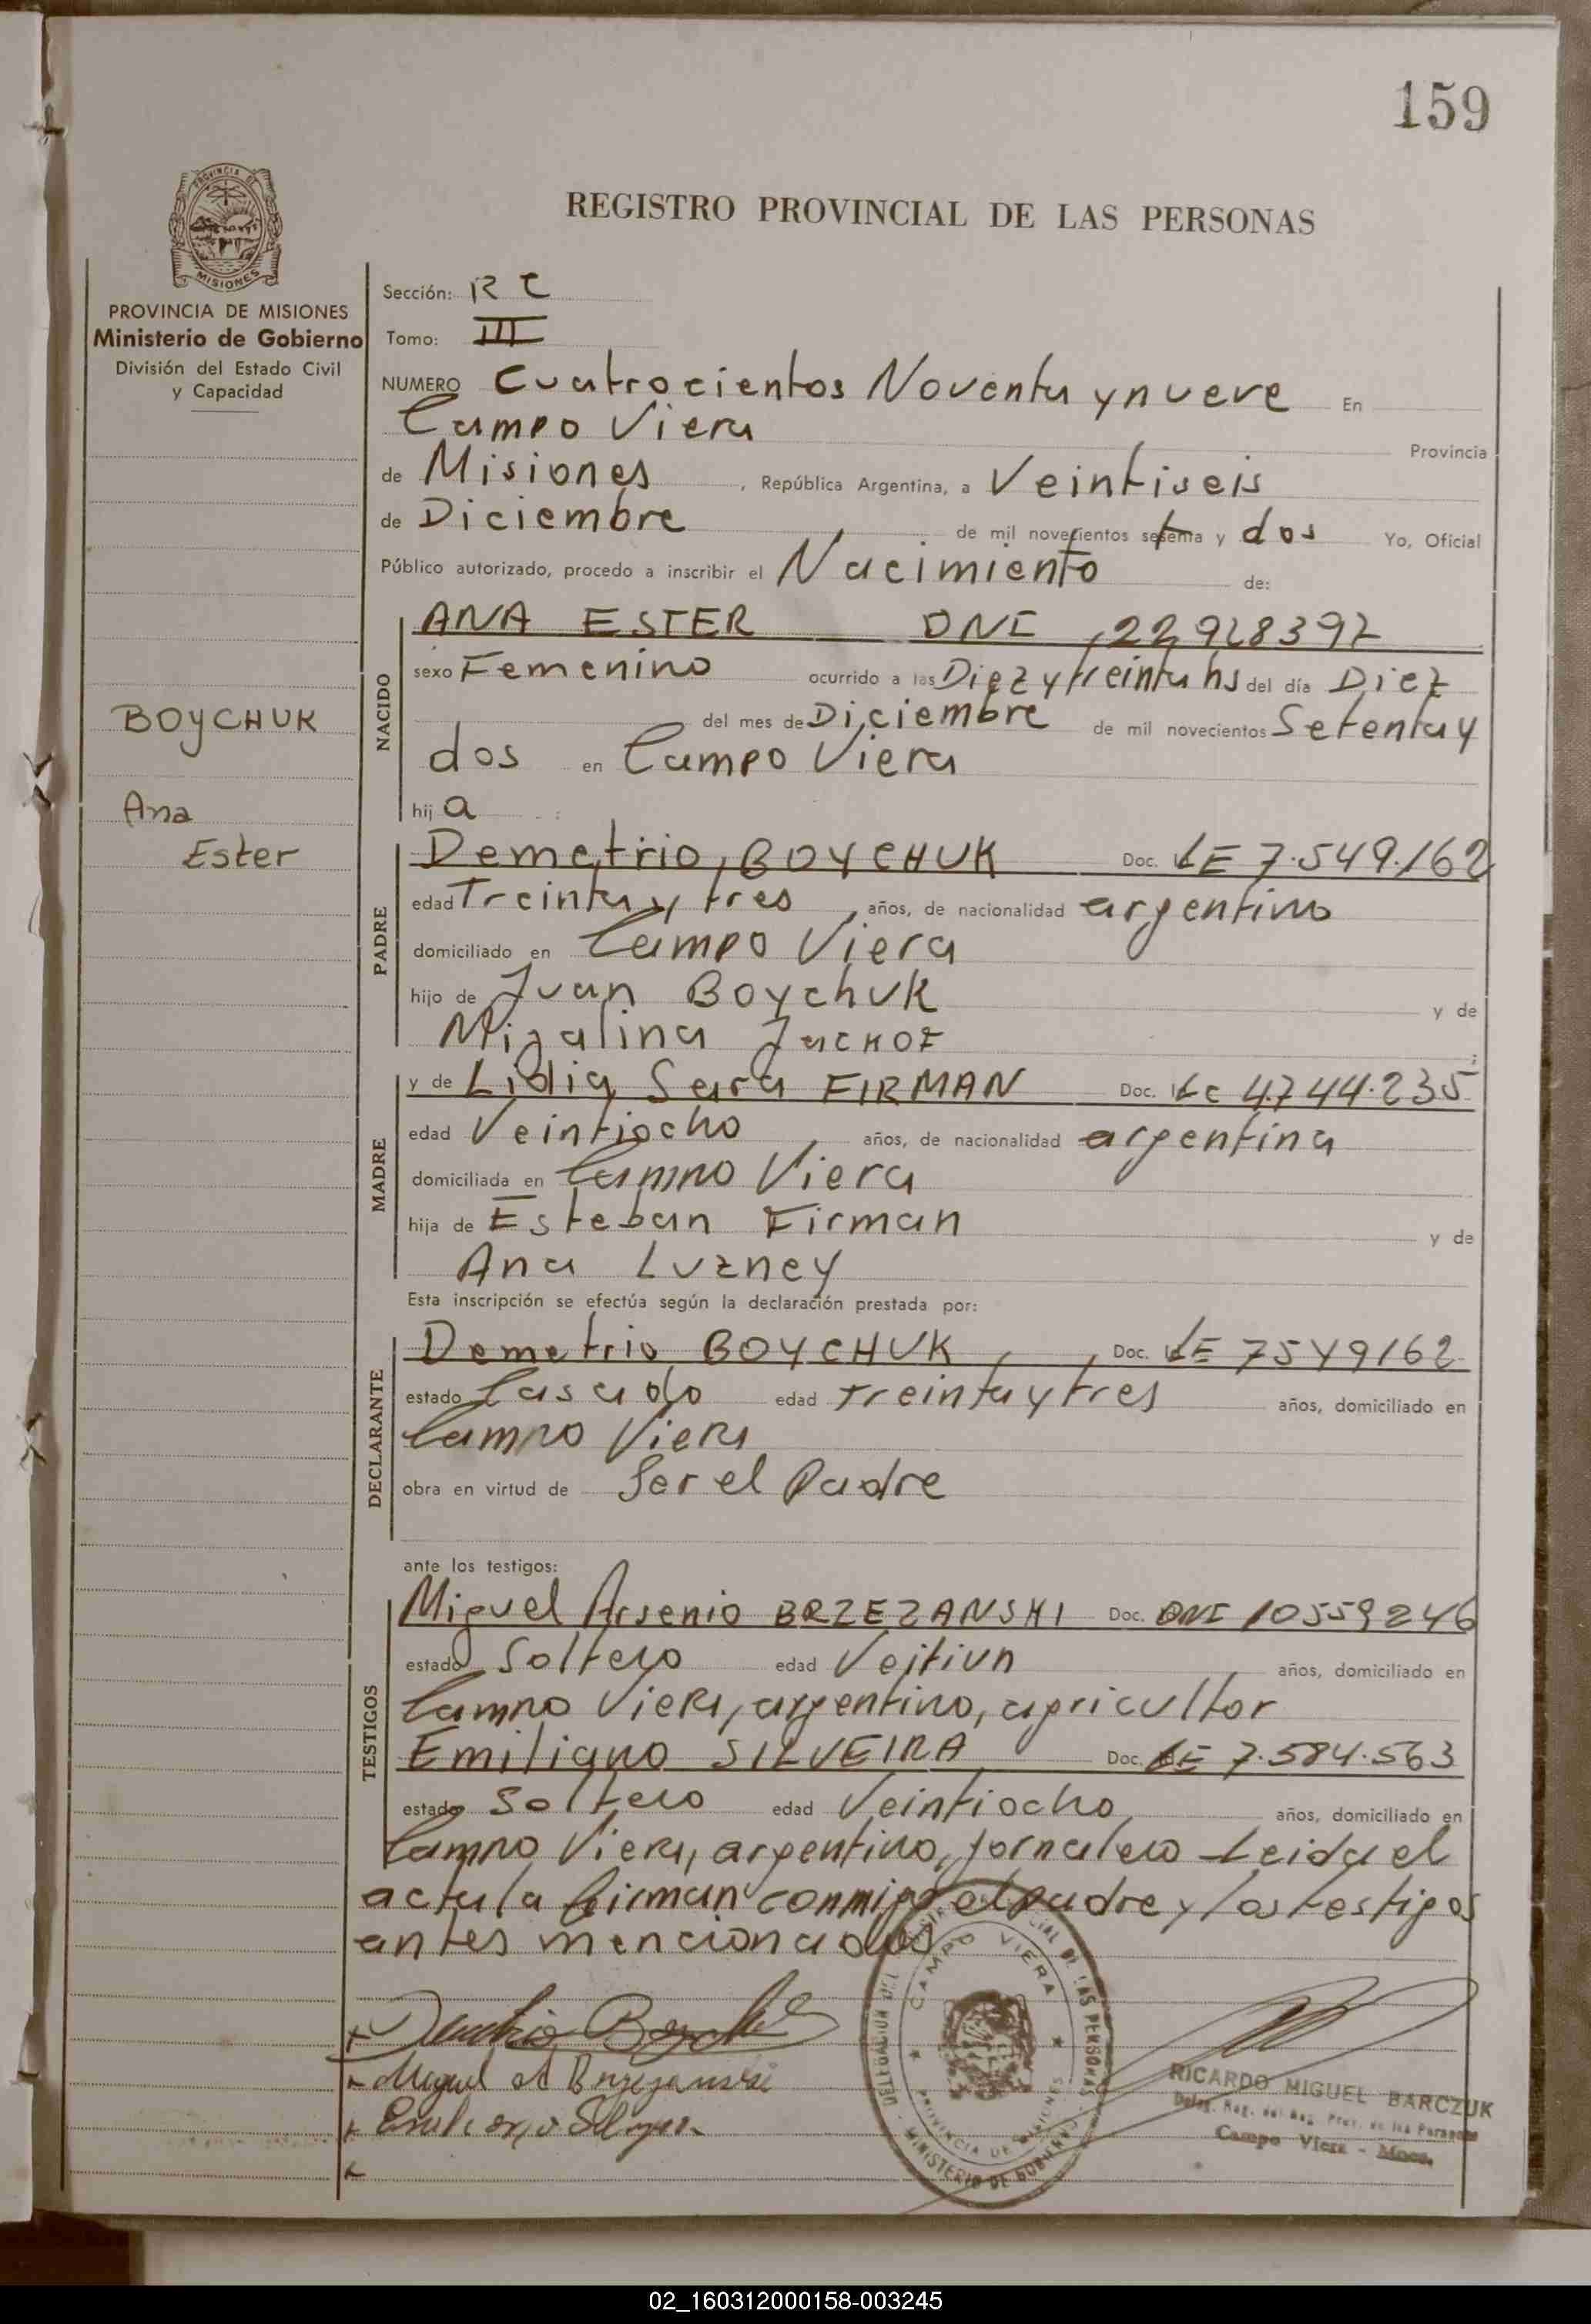 159
PROVINCIA DE
MISIONES
REGISTRO PROVINCIAL DE LAS PERSONAS
PROVINCIA DE MISIONES
Ministerio de Gobierno
División del Estado Civil
y Capacidad
BOYCHUK
Ana
Ester
Sección: R C
Tomo: III
NUMERO Cuatrocientos Noventa y nueve En
Campo Viera Provincia
de Misiones, República Argentina, a Veintiseis
de Diciembre de mil novecientos setenta y dos Yo, Oficial
Público autorizado, procedo a inscribir el Nacimiento de:
NACIDO
ANA ESTER DNI 22928397
sexo Femenino ocurrido a las Diez y treinta hs del día Diez
del mes de Diciembre de mil novecientos Setenta y
dos en Campo Viera
hij a :
PADRE
Demetrio BOYCHUK Doc. LE 7.549.162
edad Treinta y tres años, de nacionalidad argentino
domiciliado en Campo Viera
hijo de Juan Boychuk y de
Migalina ;
MADRE
y de Lidia Sara FIRMAN Doc. LC 4.744.235
edad Veintiocho años, de nacionalidad argentina
domiciliada en Campo Viera
hija de Esteban Firman y de
Ana Luzney
Esta inscripción se efectúa según la declaración prestada por:
DECLARANTE
Demetrio BOYCHUK Doc. LE 7549162
estado Casado edad treinta y tres años, domiciliado en
Campo Viera
obra en virtud de Ser el Padre
ante los testigos:
TESTIGOS
Miguel Arsenio BRZEZANSKI Doc. DNI 10559246
estado Soltero edad Veitiun años, domiciliado en
Campo Viera, argentino, agricultor
Emiliano SILVEIRA Doc. LE 7.584.563
estado Soltero edad Veintiocho años, domiciliado en
Campo Viera, argentino, jornalero Leida el
acta la firman conmigo el padre y los testigos
antes mencionados
Miguel A Brzezanski
CAMPO VIERA
PROVINCIA DE MISIONES
MINISTERIO DE GOBIERNO
RICARDO MIGUEL BARCZUK
Campo Viera - Mnes.
02_160312000158-003245